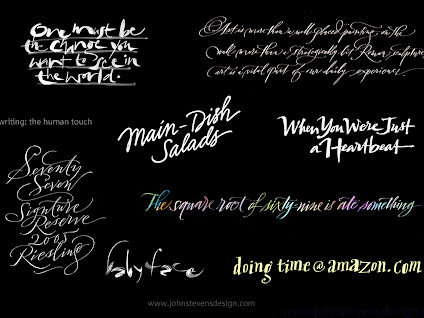 One must be
the change you
want to see in
the world.
Art is more than a well placed painting, on the
wall more than a strategically lit Roman sculpture
art is a vital part of our daily experience
writing: the human touch
Main-Dish
Salads
When You Were Just
a Heartbeat
Seventy
Seven
Signature
Reserve
2005
Riesling
The square root of sixty-nine is ate something
babyface
doing time@amazon.com
www.johnstevensdesign.com